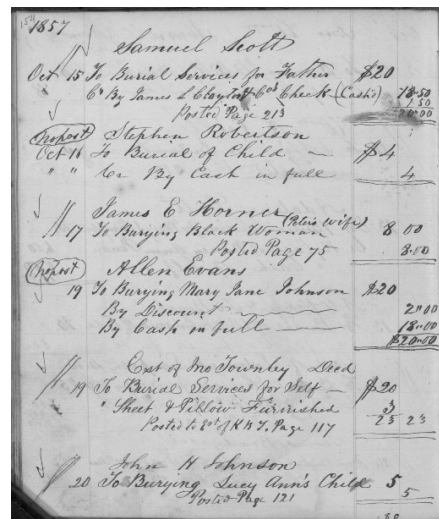 154
1857
Samuel Scott
Oct 15 To Burial Services for Father $20
Cr By James L Clayton Cos Check (Cash) 18.50
1 50
Posted Page 213 20.00
No post Stephen Robertson
Oct 16 To Burial of Child $4
" " Cr By Cash in full 4
James E Horner
(Peirs Wife)
17 To Burying Black Woman 8 00
Posted Page 75 8.00
No post Allen Evans
19 To Burying Mary Jane Johnson $20
By Discount 2.00
By Cash in full 18.00
$20.00
Est of Jno Townley Decd
19 To Burial Services for Self $20
" Sheet & Pillow Furnished 3
Posted to Est of K & T, Page 117 23 23
John H Johnson
20 To Burying Lucy Ann's Child 5
Posted Page 121 5
80